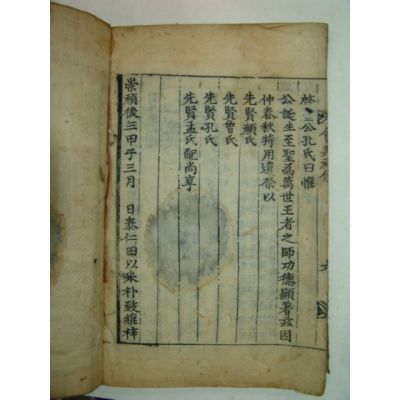 公孔氏曰惟
公誕生至聖爲萬世王者之師功德顯著玆因
仲春秋特用遣祭以
先賢顔氏
先賢曾氏
先賢孔氏
先賢孟氏配尚享
崇禎後三甲子三月 日泰仁田以采朴致維梓